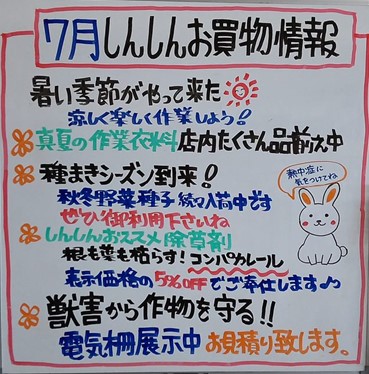 7月しんしんお買物情報
暑い季節がやって来た
涼しく楽しく作業しよう!
真夏の作業衣料 店内たくさん品揃え中
種まきシーズン到来!
秋冬野菜種子 続々入荷中です
ぜひ御利用下さいね
しんしんおススメ除草剤
根も葉も枯らす! コンパカレール
表示価格の5%OFFでご奉仕します♪
獣害から作物を守る!!
電気柵展示中 お見積り致します。
熱中症に
気をつけてね